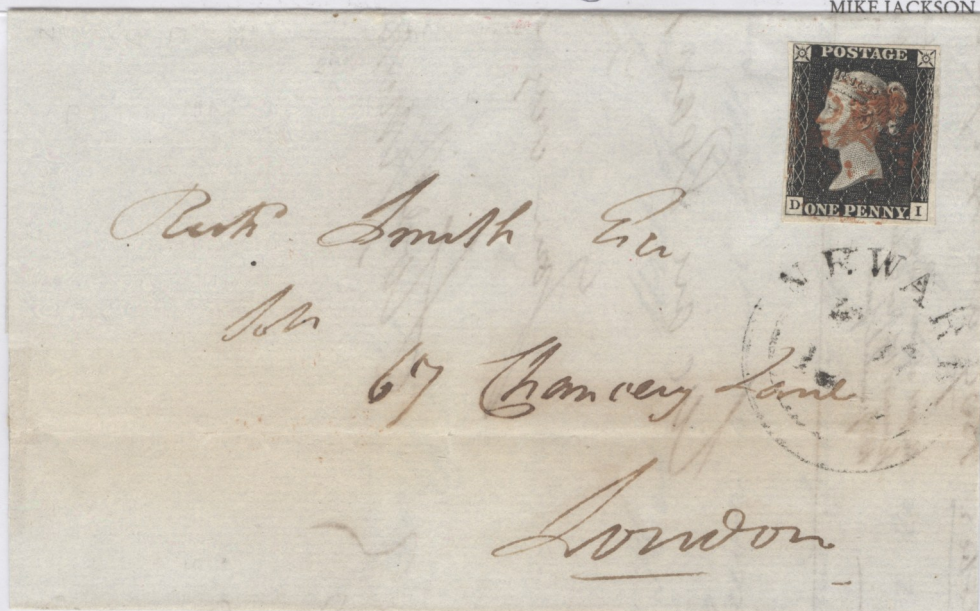 MIKE JACKSON
POSTAGE
D ONE PENNY I
NEWARK
Smith Esq
Solr
67 Chancery Lane
London